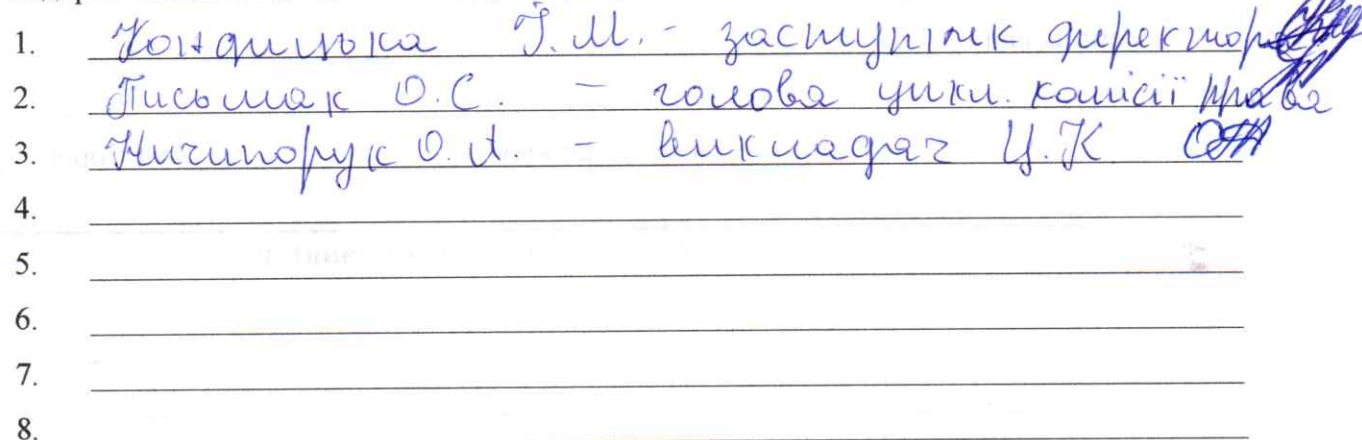 1. Кондицька І.М. - заступник директора
2. Письмак О.С. - голова цикл. комісії права
3. Ничипорук О.А. - викладач Ц.К
4.
5.
6.
7.
8.